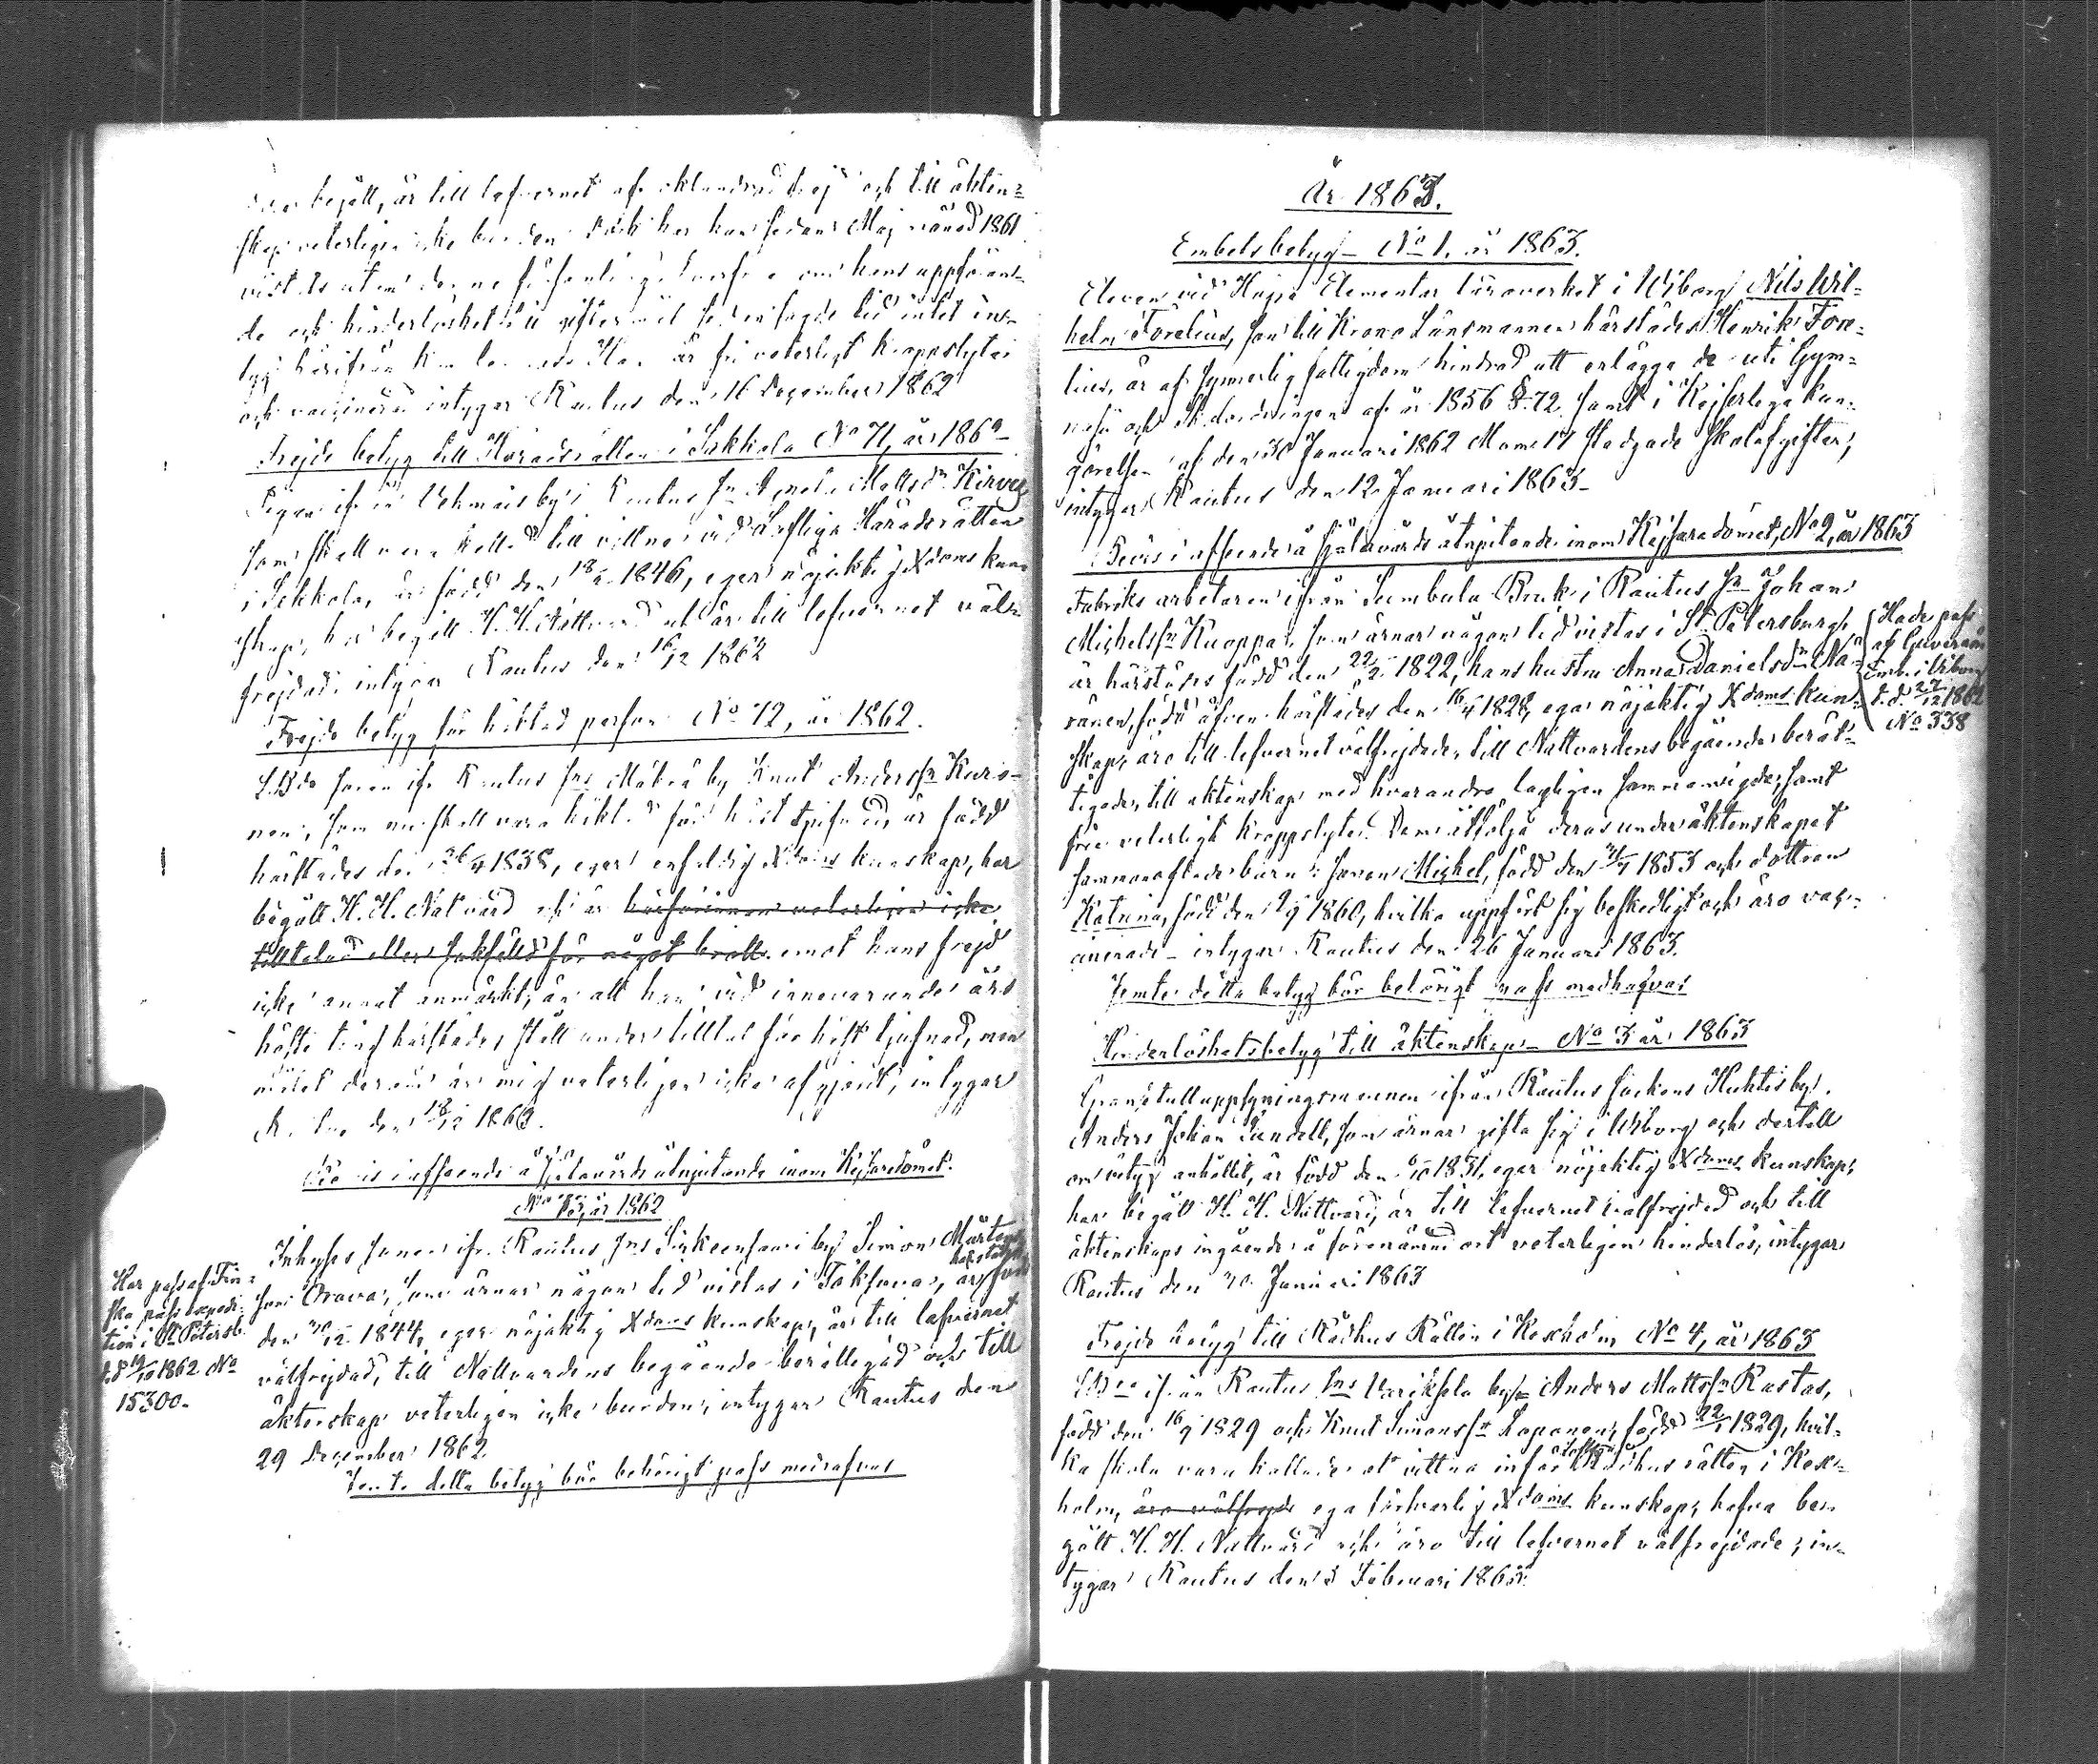 begått, är till lefvernet af oklandrad frejd och till äkten=
skap veterligen icke bunden dock har han sedan Maj månad 1861
vistats utom denne församling hvarföre om hans uppföran=
de och hinderlöshet till giftermål sedan sagde tid intet in=
tyg härifrån kan lemnas Han är fri veterligt kroppslyte
och vaccinerad intygar Rautus den 16 December 1862
Frejde betyg till Häradsrätten i Sakkola No 71, år 1862
Pigan ifrån Vehmais by i Rautus Sn Agneta Mattsdr Kirves
som skall vara kallad till vittne vid Lofliga Häradsrätten
i Sakkola, är född den 1846, eger nöjaktig Xdoms kun=
skap, har begått H. H. Nattvard och är till lefvernet väl=
frejdad, intygar Rautus den 16/12 1862
Frejde betyg för häktad person No 72, år 1862.
sonen ifr. Rautus Sns Mäkrä by Knut Anderssn Kuro=
nen, som nu skall vara häktad för häst tjufnad, är född
härstädes den 26/4 1838, eger enfaldig Xdoms kunskap, har
begått H. H. Natvard och är härförinnan veterligen icke
tilltalad eller sakfälld för något brott emot hans frejd
icke annat anmärkt, än att han vid innevarande års
höste ting härstädes, stått under tilltal för häst tjufnad, men
målet derom är mig veterligen icke afgjordt, intygar
Rautus den 18/12 1862.
Bevis i afseende å Själavårds åtnjutande inom Kejsaredömet.
No 73, år 1862
Inhyses sonen ifr. Rautus Sns Sirkeensaari by Simon Mårtens
härstädes
son Orava, som ämnar någon tid vistas i Toksova, är född
den 30/12 1844, eger nöjaktig Xdoms kunskap, är till lefvernet
välfrejdad, till Nattvardens begående berättigad och till
äktenskap veterligen icke bunden, intygar Rautus den
29 December 1862.
Jemte detta betyg bör behörigt pass medhafvas
Har pass af Fin=
ska pass expedi=
tion i St Petersb.
d.d. 19/10 1862 No
15300.
År 1863.
Embetsbetyg No 1. år 1863.
Eleven vid Högre Elementar läroverket i Wiborg Nils Wil=
helm Forelius, son till Krono Länsmannen härstädes Henrik Fore=
lius, är af synnerlig fattigdom hindrad att erlägga de uti Gym=
nasii och Skolordningen af år 1856 §. 72 samt i Kejserliga kun=
görelsen af den 30 Januari 1862 Mom. 17 stadgade skolafgifter,
intygar Rautus den 12 Januari 1863.
Bevis i afseende å själavårds åtnjutande inom Kejsaredömet, No 2, år 1863
Fabriks arbetaren ifrån Sumbula Bruk i Rautus Sn Johan
Michelssn Kuoppa, som ämnar någon tid vistas i St Petersburg
är härstädes född den 22/2 1822, hans hustru Anna Danielsdr Nä=
ränen, född äfven härstädes den 16/4 1828, ega nöjaktig Xdoms kun=
skap, äro till lefvernet välfrejdade, till Nattvardens begående berät=
tigade, till äktenskap med hvarandra lagligen sammanvigde, samt
frie veterligt kroppslyte. Dem åtfölja deras under äktenskapet
sammanaflade barn: sonen Michel, född den 1853 och dottren
Katrina, född den 1860, hvilka uppfört sig beskedligt och äro vac=
cinerade intygar Rautus den 26 Januari 1863.
Jemte detta betyg bör behörigt pass medhafvas
Hade pass
af Guvernörs
Emb. i Wiborg
d.d. 27/12 1862
No 338
Hinderlöshetsbetyg till äktenskap No 3 år 1863
Gränstulluppsyningsmannen ifrån Rautus Sockens Huhtis by.
Anders Johan Sundell, som ämnar gifta sig i Wiborg och dertill
om intyg anhållit, är född den 1831, eger nöjaktig Xdoms kunskap,
har begått H. H. Nattvard, är till lefvernet välfrejdad och till
äktenskaps ingående å förenämnd ort veterligen hinderlös, intygar
Rautus den 30 Januari 1863
Frejde betyg till Rådhus Rätten i Kexholm No 4, år 1863
ifrån Rautus Sns Varikselä by Anders Mattssn Rastas,
född den 16/9 1829 och Knut Simonssn Loponen, född 22/1 1829, hvil=
Lofliga
ka skola vara kallade att vittna inför Rådhus rätten i Kex=
holm, äro välfrejd ega försvarlig Xdoms kunskap, hafva be=
gått H. H. Nattvard och äro till lefvernet välfrejdade, in=
tygar Rautus den 3 Februari 1863.